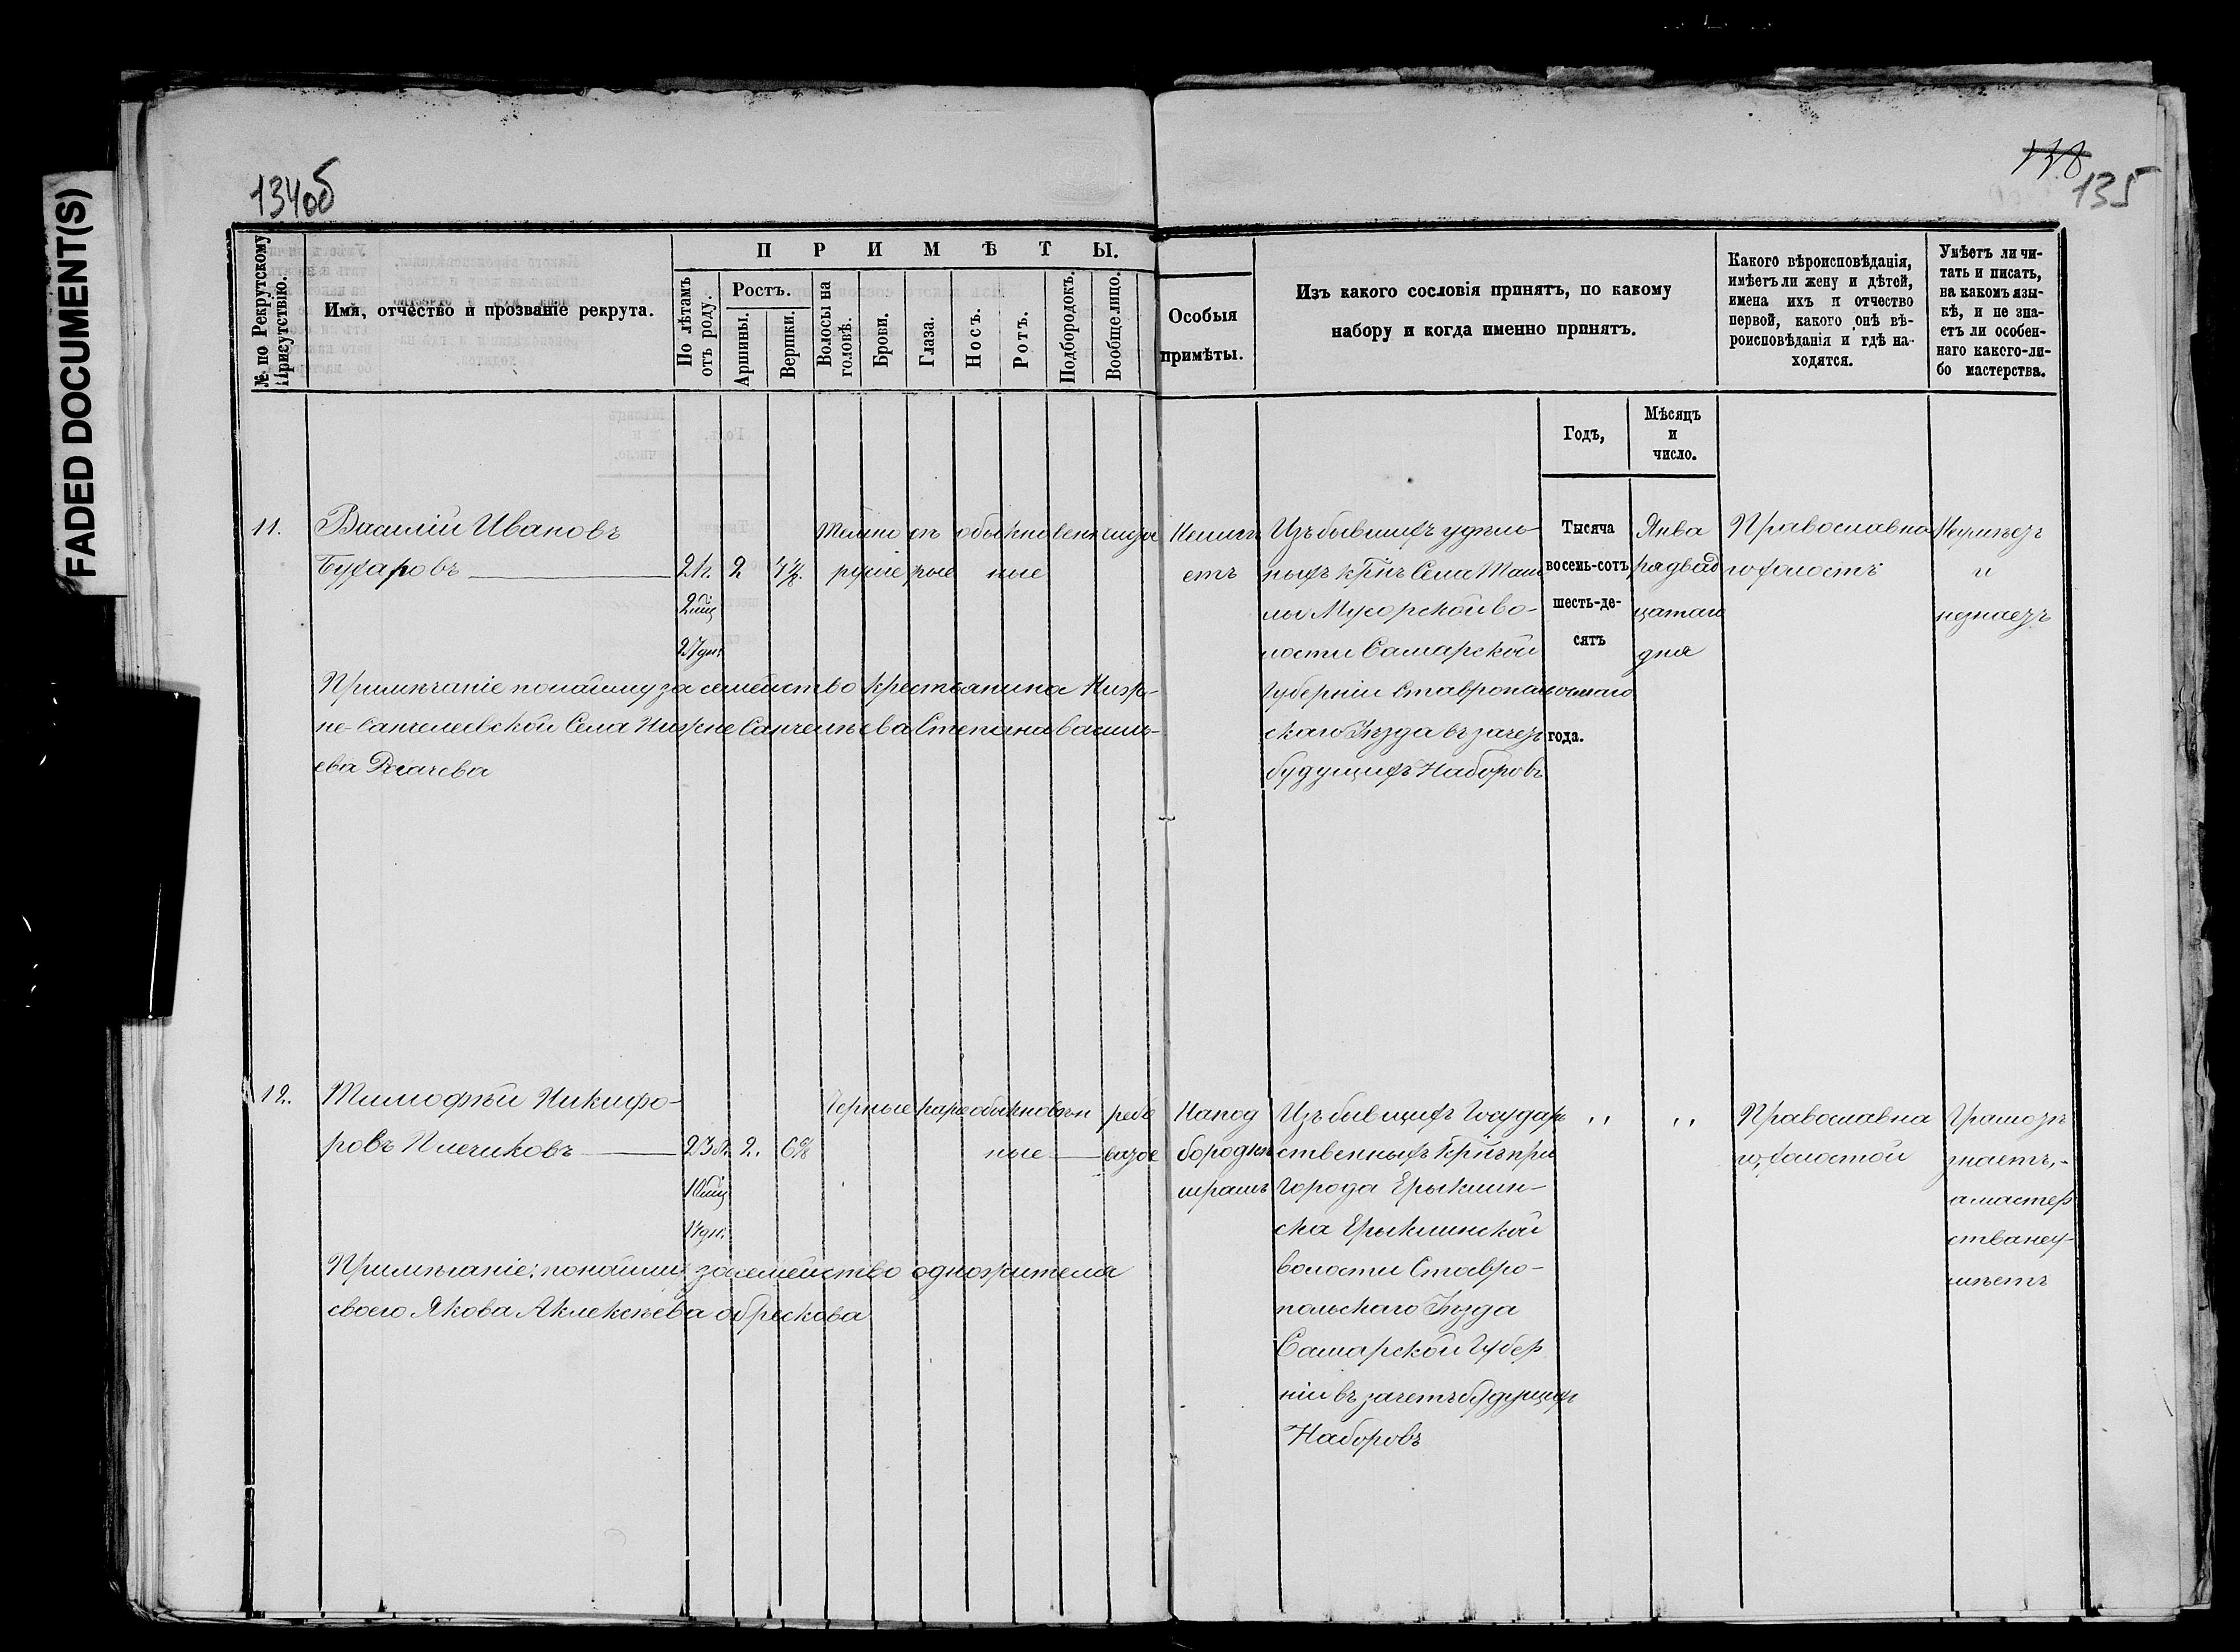 FADED DOCUMENT(S)
134об
138
135
№ по Рекрутскому Присутствію.
Имя, отчество и прозваніе рекрута.
ПРИМѢТЫ.
По лѣтамъ отъ роду.
Ростъ.
Аршины.
Вершки.
Волосы на головѣ.
Брови.
Глаза.
Носъ.
Ротъ.
Подбородокъ.
Вообще лицо.
Особыя
примѣты.
Изъ какого сословія принятъ, по какому
набору и когда именно принятъ.
Какого вѣроисповѣданія,
имѣетъ ли жену и дѣтей,
имена ихъ и отчество
первой, какого онѣ вѣ-
роисповѣданія и гдѣ на-
ходятся.
Умѣетъ ли чи-
тать и писать,
на какомъ язы-
кѣ, и не зна-
етъ ли особен-
наго какого-ли-
бо мастерства.
Годъ,
Мѣсяцъ
и
число.
11.
Василій Ивановъ
Бухаровъ
21г.
2 мц
27 дн.
2
4 4/8
Темно
русые
сѣ
рые
обыкновен
ные
чистое
Неимѣ
етъ
Изъ бывшихъ удѣль-
ныхъ крнъ Села Таш
лы Мусорской во-
лости Самарской
Губерніи Ставрополь
скаго Уѣзда въ зачетъ
будущихъ Наборовъ
Тысяча
восемь-сотъ
шесть-де-
сятъ
осьмаго
года.
Янва
ря двад
цатаго
дня
Православна
го холостъ
Неумѣетъ
и
незнаетъ
Примѣчаніе понайму за семейство крестьянина Ниж-
не-Санчелеевской Села Нижне Санчелѣева Степана Василь-
ева Рогачева
12.
Тимофѣй Никифо-
ровъ Пчеликовъ
23 л.
10 мц
17 дн.
2.
6 6/8
Черные
каріе
обыкновен
ные
рябо
ватое
На под
бородкѣ
шрамъ
Изъ бывшихъ Государ
ственныхъ Крнъ при
города Ерыклин-
ска Ерыклинской
волости Ставро-
польскаго Уѣзда
Самарской Губер
ніи въ зачетъ будущихъ
Наборовъ
,,
,,
Православна
го, холостой
Грамотѣ
знаетъ,-
а мастер
ства неу-
мѣетъ
Примѣчаніе: понайми за семейство одножителя
своего Якова Аклексѣева обрескова